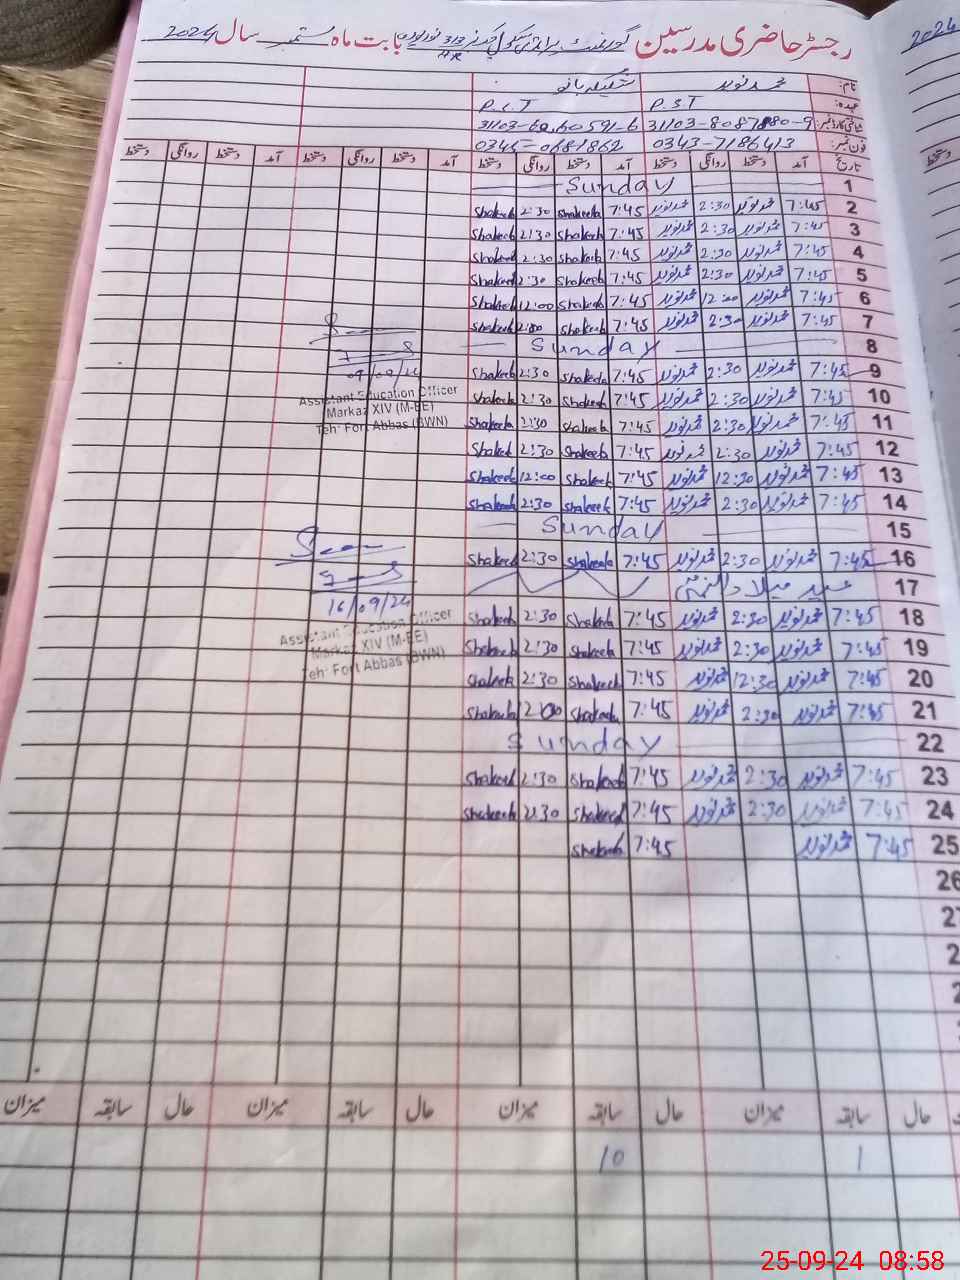 رجسٹر حاضری مدرسین گورنمنٹ پرائمری سکول چک نمبر 313 بابت ماہ ستمبر سال 2024
HR
2024
نام: محمد نوید شکیلہ بانو
عہدہ: P.S.T P.S.T
شناختی کارڈ نمبر: 31103-8087880-9 31103-6060591-6
فون نمبر: 0343-7186413 0345-0681862
تاریخ آمد دستخط روانگی دستخط آمد دستخط روانگی دستخط آمد دستخط روانگی دستخط آمد دستخط روانگی دستخط
دستخط
1 Sunday
2 7:45 محمد نوید 2:30 محمد نوید 7:45 Shakeela 2:30 Shakeela
3 7:45 محمد نوید 2:30 محمد نوید 7:45 Shakeela 2:30 Shakeela
4 7:45 محمد نوید 2:30 محمد نوید 7:45 Shakeela 2:30 Shakeela
5 7:45 محمد نوید 2:30 محمد نوید 7:45 Shakeela 2:30 Shakeela
6 7:45 محمد نوید 12:00 محمد نوید 7:45 Shakeela 12:00 Shakeela
7 7:45 محمد نوید 2:30 محمد نوید 7:45 Shakeela Shakeela
8 Sunday
9 7:45 محمد نوید 2:30 محمد نوید 7:45 Shakeela 2:30 Shakeela
09/09/24
10 7:45 محمد نوید 2:30 محمد نوید 7:45 Shakeela 2:30 Shakeela
Assistant Education Officer
Markaz XIV (M-EE)
Teh: Fort Abbas (BWN)
11 7:45 محمد نوید 2:30 محمد نوید 7:45 Shakeela 2:30 Shakeela
12 7:45 محمد نوید 2:30 محمد نوید 7:45 Shakeela 2:30 Shakeela
13 7:45 محمد نوید 12:30 محمد نوید 7:45 Shakeela 12:00 Shakeela
14 7:45 محمد نوید 2:30 محمد نوید 7:45 Shakeela 2:30 Shakeela
15 Sunday
16 7:45 محمد نوید 2:30 محمد نوید 7:45 Shakeela 2:30 Shakeela
17 عید میلاد النبی
16/09/24
Assistant Education Officer
Markaz XIV (M-EE)
Teh: Fort Abbas (BWN)
18 7:45 محمد نوید 2:30 محمد نوید 7:45 Shakeela 2:30 Shakeela
19 7:45 محمد نوید 2:30 محمد نوید 7:45 Shakeela 2:30 Shakeela
20 7:45 محمد نوید 12:30 محمد نوید 7:45 Shakeela 2:30 Shakeela
21 7:45 محمد نوید 2:30 محمد نوید 7:45 Shakeela Shakeela
22 Sunday
23 7:45 محمد نوید 2:30 محمد نوید 7:45 Shakeela 2:30 Shakeela
24 7:45 محمد نوید 2:30 محمد نوید 7:45 Shakeela 2:30 Shakeela
25 7:45 محمد نوید 7:45 Shakeela
26
27
2
2
حال سابقہ میزان حال سابقہ میزان حال سابقہ میزان حال سابقہ میزان
1 10
25-09-24 08:58